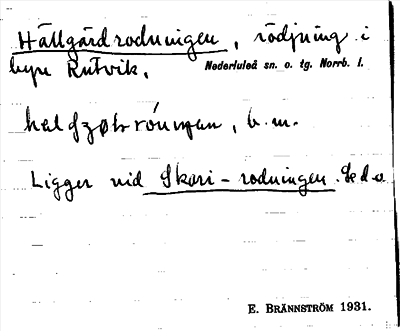 Hällgårdrodningen, rödjning i
byn Rutvik. Nederluleå sn. o. tg. Norrb. l.
b. m.
Ligger vid Skari-rodningen. Se d. o.
E. BRÄNNSTRÖM 1931.